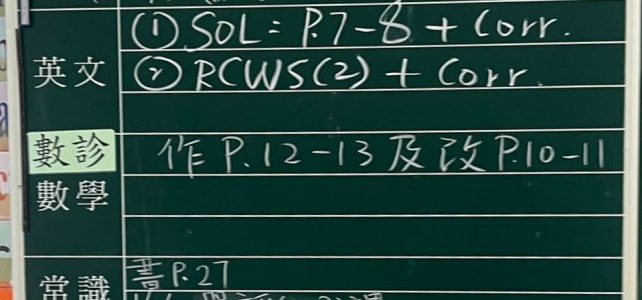 英文 ① SOL: P.7-8 + Corr.
② RCWS(2) + Corr.
數診 作 P.12-13 及改 P.10-11
數學
常識 書 P.27